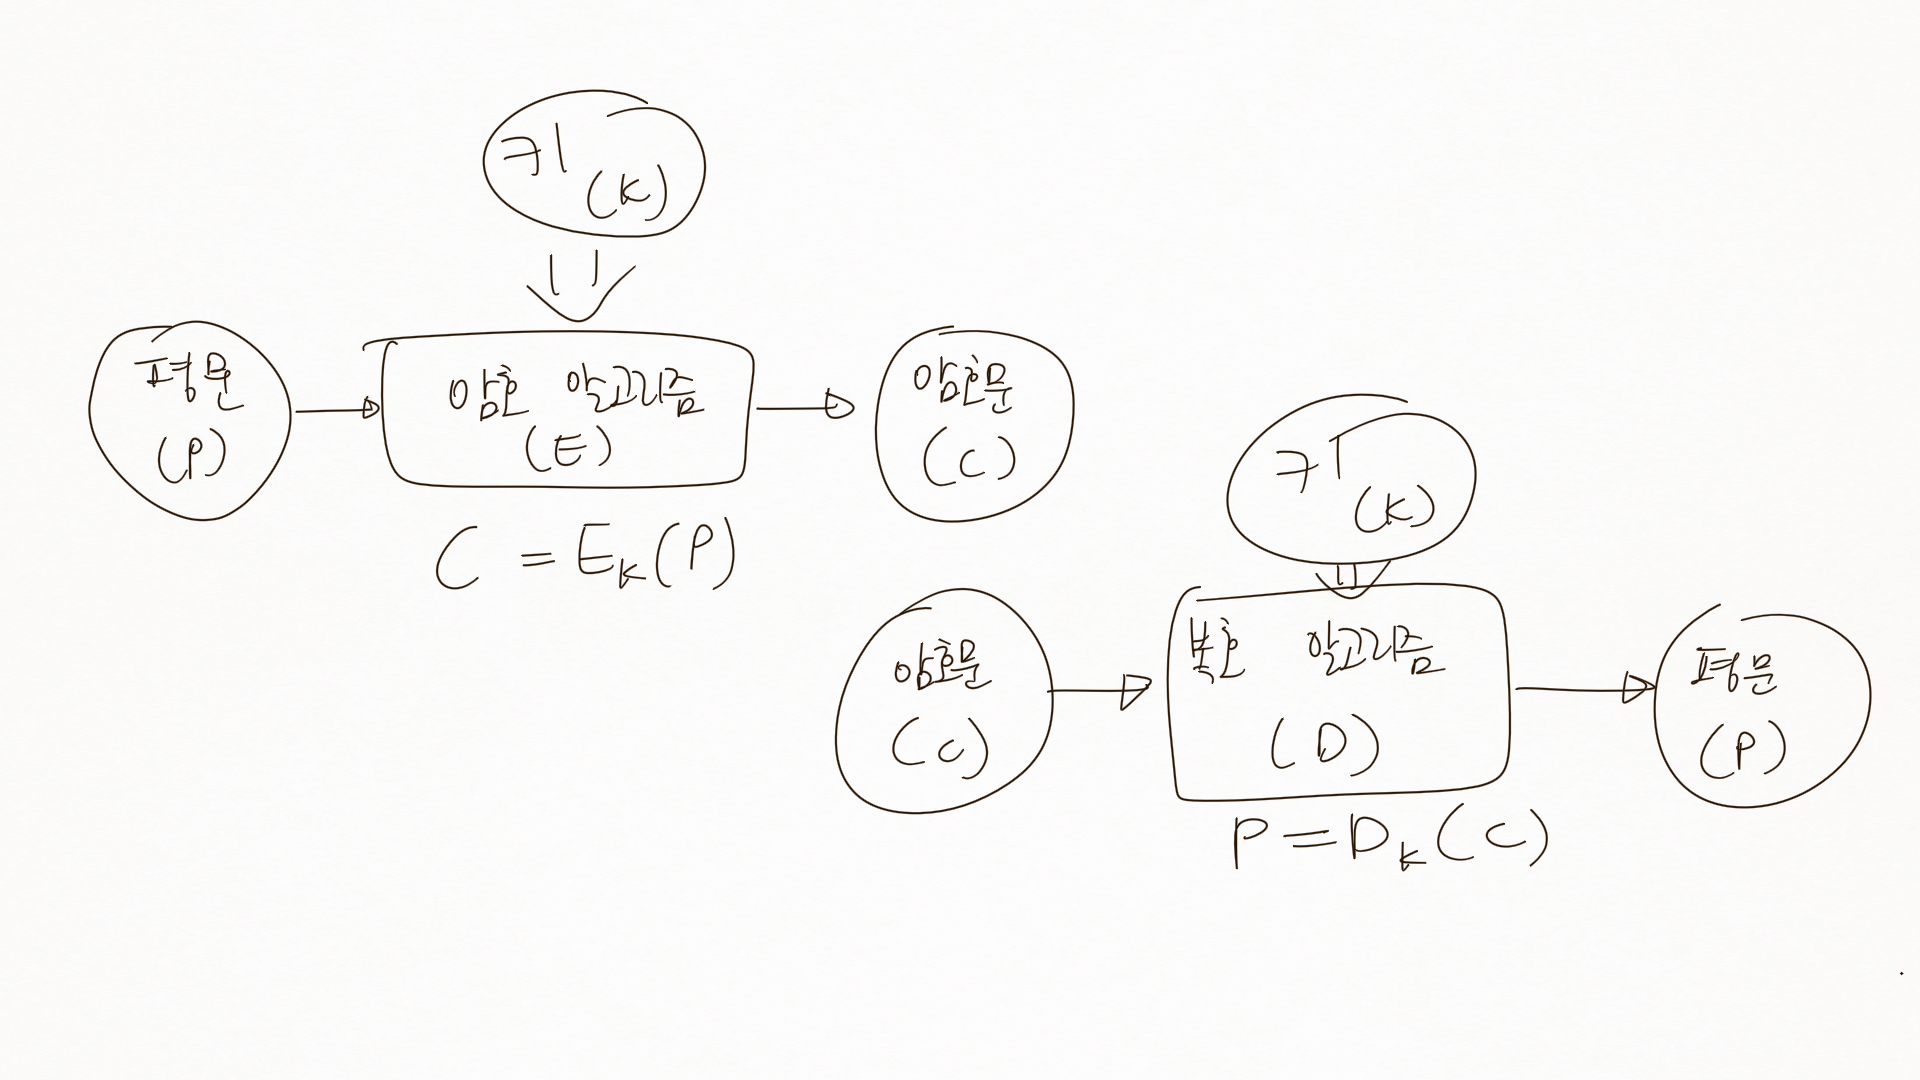 키
(K)
평문
(P)
암호 알고리즘
(E)
암호문
(C)
C = E_K(P)
키
(K)
암호문
(C)
복호 알고리즘
(D)
평문
(P)
P = D_K(C)